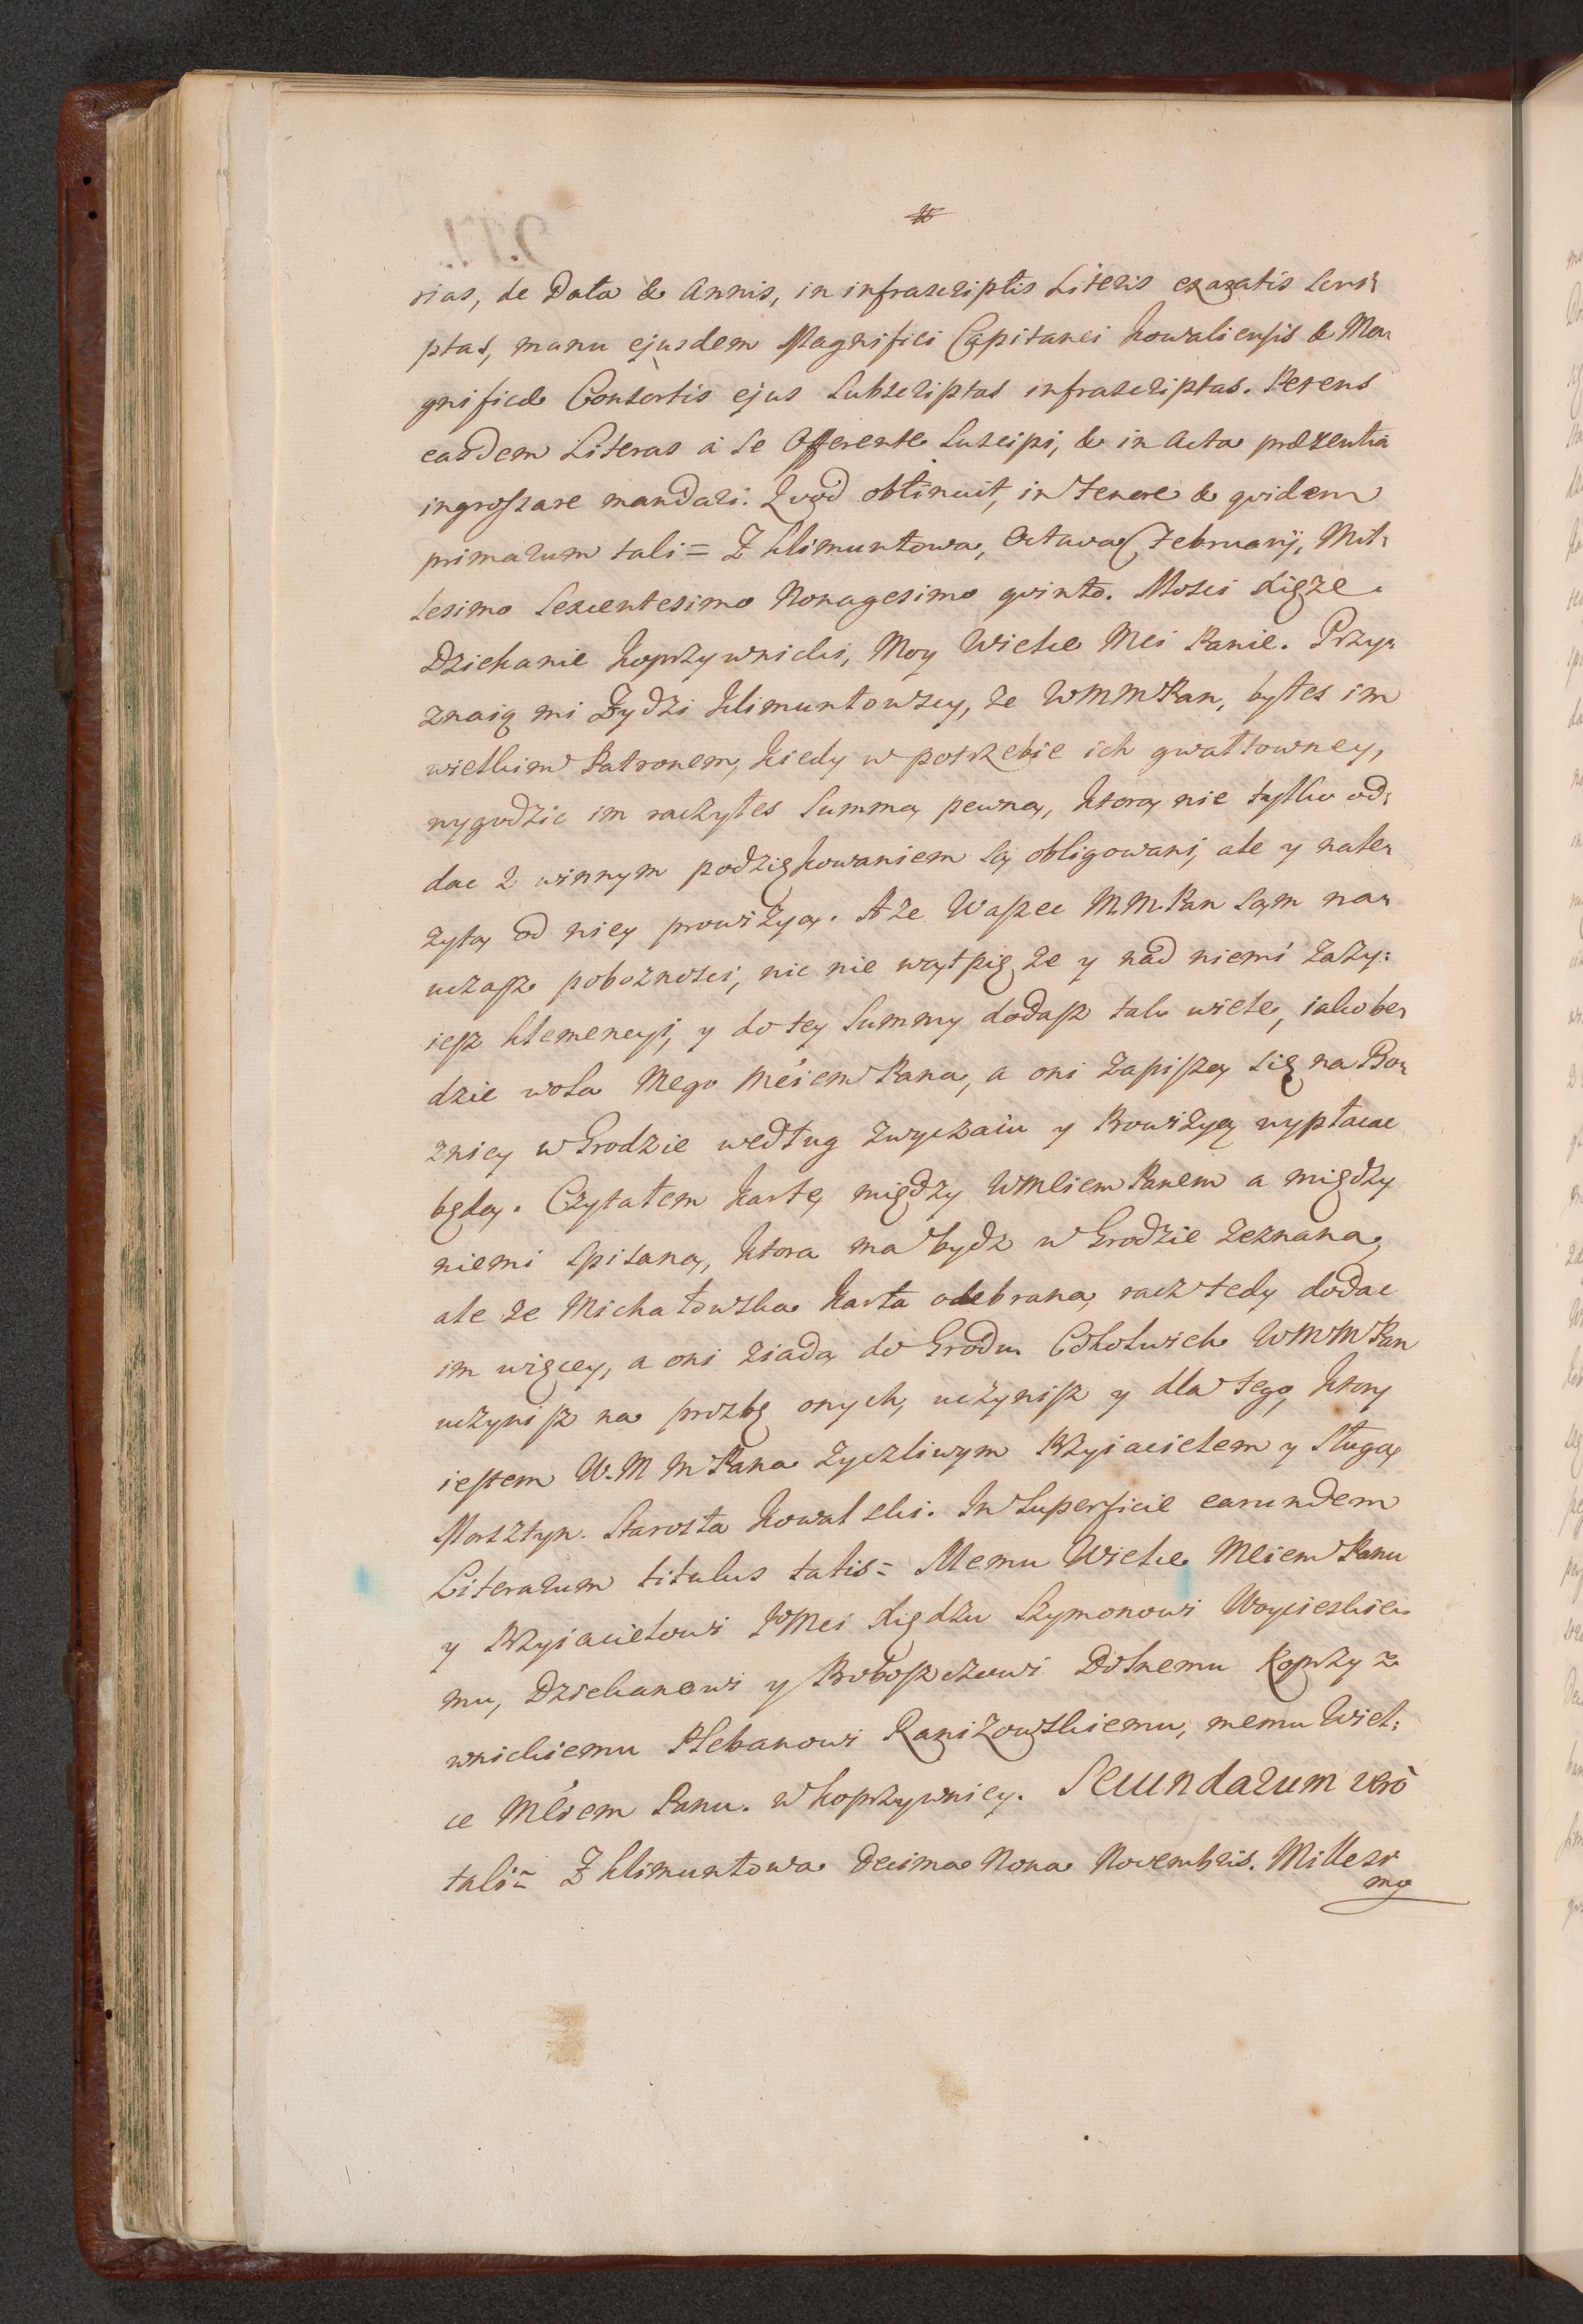 rias, de Data & Annis, in infrascriptis Literis exaratis Scri-
ptas, manu ejusdem Magnifici Capitanei Kowaliensis & Ma-
gnificæ Consortis ejus Subscriptas infrascriptas. Petens
easdem Literas à Se Offerente Suscipi, & in Acta præsentia
ingrossare mandari. Quod obtinuit, in tenore & quidem
primarum tali = Z Klimuntowa, Octava Februarij, Mil-
lesimo Sexcentesimo Nonagesimo quinto. Mosci Xięże
Dziekanie Koprzywnicki, Moy Wielce Mci Panie. Przy-
znaią mi Żydzi Klimuntowscy, że WMMPan, byłes im
wielkim Patronem, kiedy w potrzebie ich gwałtowney,
wygodzic im raczyłes Summą pewną, ktorą nie tylko od-
dac z winnym podziękowaniem są obligowani, ale y nale-
żytą od niey prowizyą. A że Waszec M.M.Pan sam na-
uczasz poboznosci, nic nie wątpię że y nad niemi zaży-
iesz klemencyi, y do tey Summy dodasz tak wiele, iako be-
dzie wola Mego Mciem Pana, a oni zapiszą się na Bo-
znicy w Grodzie według zwyczaiu y Prowizyą wypłacac
będą. Czytałem kartę między WMciem Panem a między
niemi spisaną, ktora ma bydz w Grodzie zeznana,
ale że Michałowska karta odebrana, racz tedy dodac
im więcey, a oni ziadą do Grodu. Cokolwiek WMMPan
uczynisz na prozbę onych, uczynisz y dla tego, ktory
iestem W.M M Pana życzliwym Przyiacielem y sługą
Morsztyn. Starosta Kowalski. In Superficie earundem
Literarum titulus talis = Memu Wielce Mciem Panu
y Przyiacielowi JMci Xiędzu Szymonowi Woycieskie-
mu, Dziekanowi y Proboszczowi Dolnemu Koprzy-
wnickiemu Plebanowi Ranizowskiemu, memu Wiel-
ce Mciem Panu. w Koprzywnicy. Secundarum verò
tali = Z Klimuntowa Decima Nona Novembris. Millesi
mo